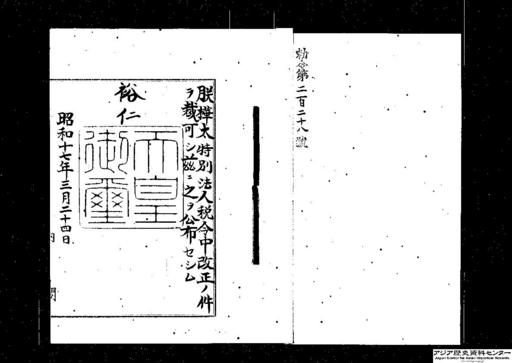 勅令第二百二十八號
朕樺太特別法人税令中改正ノ件
ヲ裁可シ茲ニ之ヲ公布セシム
裕仁
天皇
御璽
昭和十七年三月二十四日
アジア歴史資料センター
Japan Center for Asian Historical Records